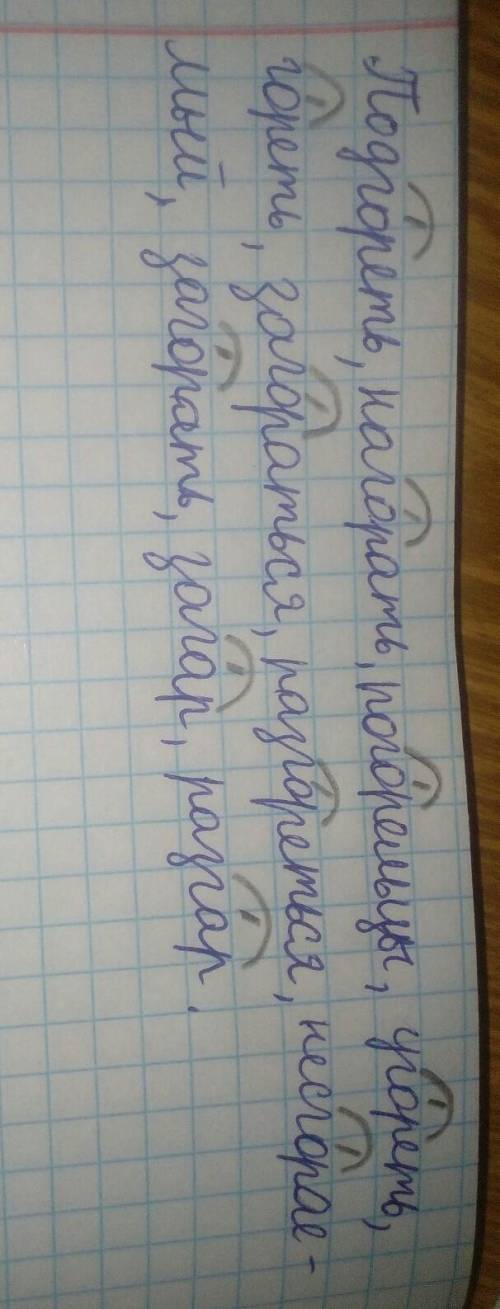 Подгореть, нагорать, погорельцы, угореть,
гореть, загораться, разгореться, несгорае-
мый, загорать, загар, разгар.